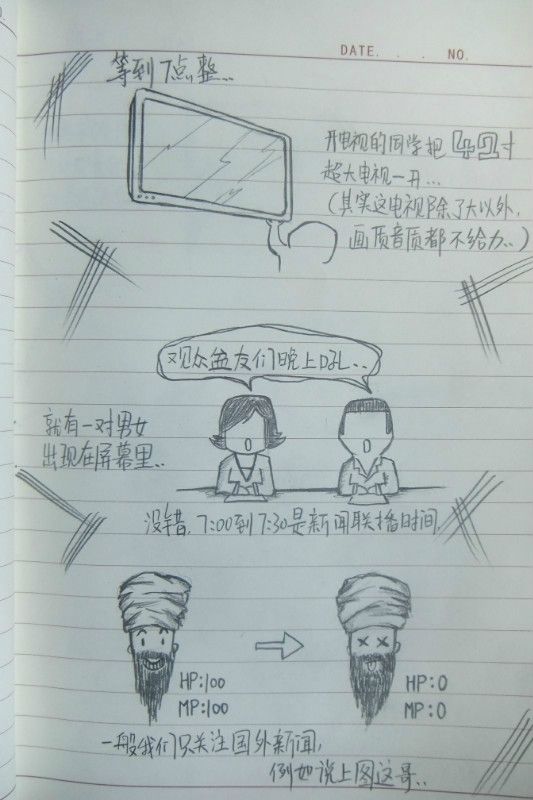 DATE. . . NO.
等到7点整..
开电视的同学把42寸
超大电视一开...
(其实这电视除了大以外,
画质音质都不给力..)
观众盆友们晚上吼..
就有一对男女
出现在屏幕里..
没错,7:00到7:30是新闻联播时间,
HP:100
MP:100
HP:0
MP:0
一般我们只关注国外新闻,
例如说上图这哥..